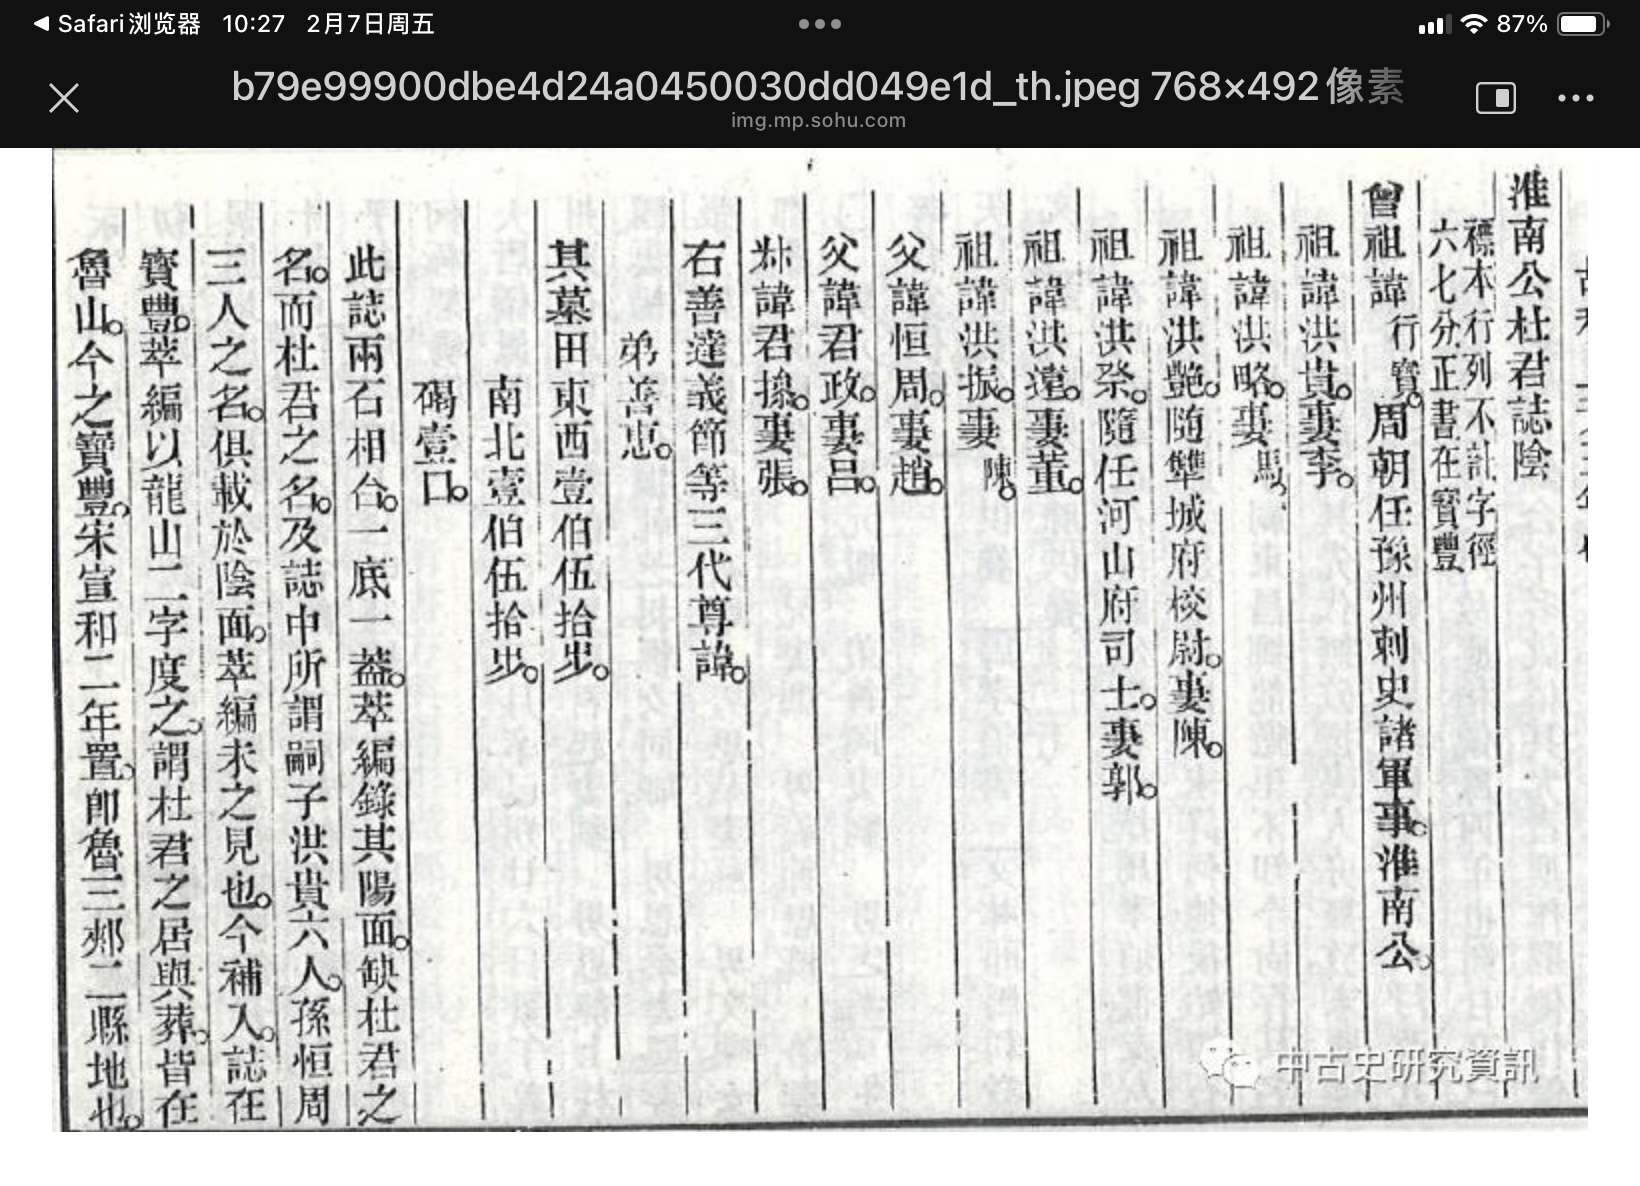 Safari浏览器 10:27 2月7日周五
87%
b79e99900dbe4d24a0450030dd049e1d_th.jpeg 768×492像素
img.mp.sohu.com
淮南公杜君誌陰
標本行列不計字徑
六七分正書在寳豐
曾祖諱行寳。周朝任豫州刺史諸軍事。淮南公。
祖諱洪貴。妻李。
祖諱洪略。妻馬。
祖諱洪艷。随雙城府校尉。妻陳。
祖諱洪祭。隨任河山府司士。妻郭。
祖諱洪遠。妻董。
祖諱洪振。妻陳。
父諱恒周。妻趙。
父諱君政。妻呂。
諱君操。妻張。
右善達義節等三代尊諱。
弟善恵。
其墓田東西壹伯伍拾步。
南北壹伯伍拾步。
碣壹口。
此誌兩石相合。一底一葢。萃編錄其陽面。缺杜君之
名。而杜君之名。及誌中所謂嗣子洪貴六人。孫恒周
三人之名。俱載於陰面。萃編未之見也。今補入。誌在
寳豐。萃編以龍山二字度之。謂杜君之居與葬。皆在
魯山。今之寳豐。宋宣和二年置。即魯三郟二縣地也。
中古史研究資訊